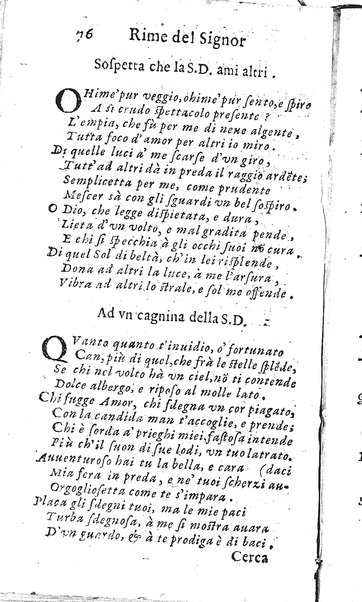 76 Rime del Signor
Sospetta che la S.D. ami altri.
OHime' pur veggio, ohime' pur sento, e spiro
A sì crudo spettacolo presente?
L'empia, che fù per me di neue algente,
Tutta foco d'amor per altri io miro.
Di quelle luci à me scarse d'vn giro,
Tutt' ad altri dà in preda il raggio ardēte;
Semplicetta per me, come prudente
Mescer sà con gli sguardi vn bel sospiro.
O Dio, che legge dispietata, e dura,
Lieta d'vn volto, e mal gradita pende,
E chi si specchia à gli occhi suoi nō cura.
Di quel Sol di beltà, ch'in lei risplende,
Dona ad altri la luce, à me l'arsura,
Vibra ad altri lo strale, e sol me offende.
Ad vn cagnina della S.D.
QVanto quanto t'inuidio, ò fortunato
Can, più di quel, che frà le stelle splēde,
Se chi nel volto hà vn ciel, nō ti contende
Dolce albergo, e riposo al molle lato.
Chi fugge Amor, chi sdegna vn cor piagato,
Con la candida man t'accoglie, e prende;
Chi è sorda a' prieghi miei, fastosa intende
Più ch'il suon di sue lodi, vn tuo latrato.
Auuenturoso hai tu la bella, e cara (daci
Mia fera in preda, e ne' tuoi scherzi au-
Orgogliosetta come te s'impara.
Placa gli sdegni tuoi, ma le mie paci
Turba sdegnosa, à me si mostra auara
D'vn guardo, & à te prodiga è di baci.
Cerca